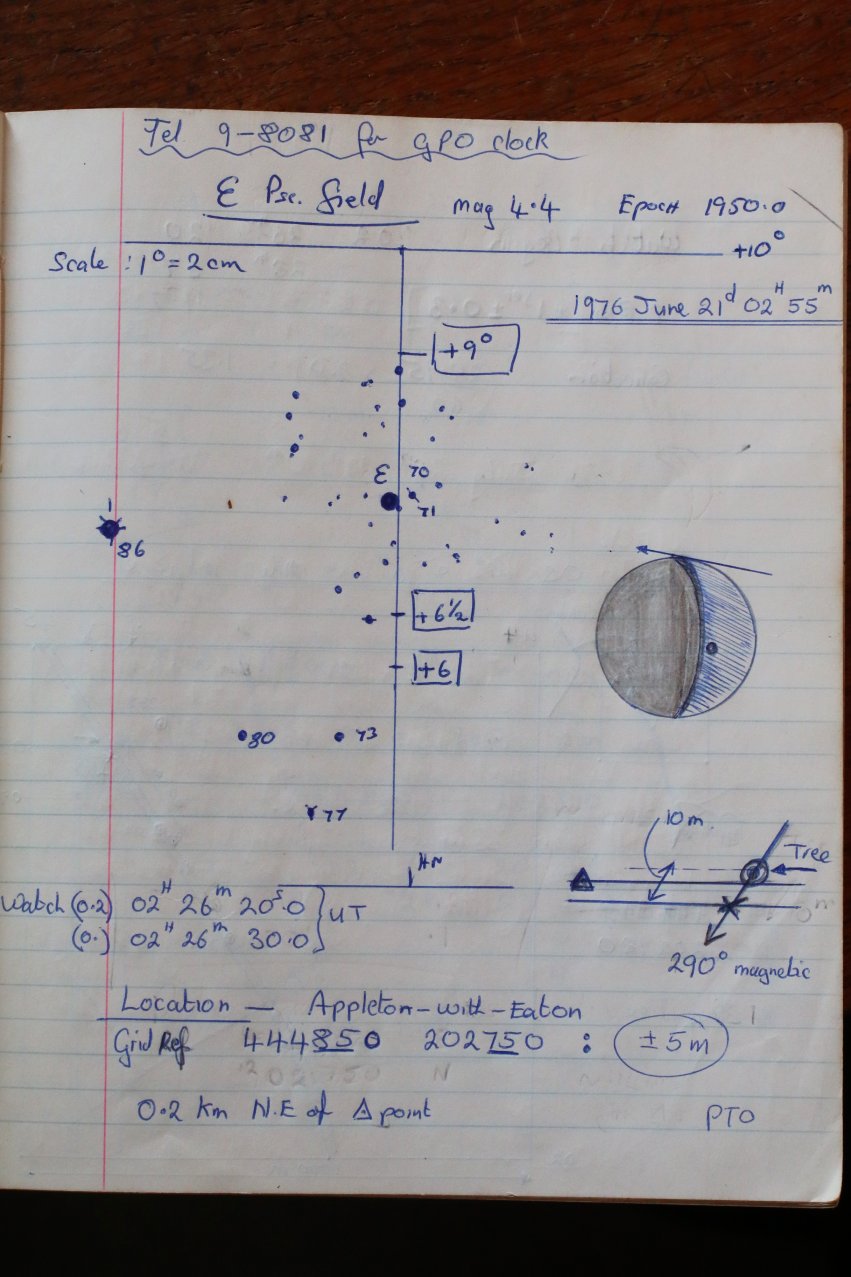 Tel 9-8081 for GPO clock
ε Psc. field mag 4.4 Epoch 1950.0
+10°
Scale : 1° = 2cm
1976 June 21d 02H 55m
+9°
ε 70
71
86
+6½
+6
80 73
77
10m.
Tree
Watch (0.2) 02H 26m 20s.0 } UT
(0.) 02H 26m 30.0
290° magnetic
Location — Appleton-with-Eaton
Grid Ref 444850 202750 : ±5m
0.2 km N.E of △ point
PTO